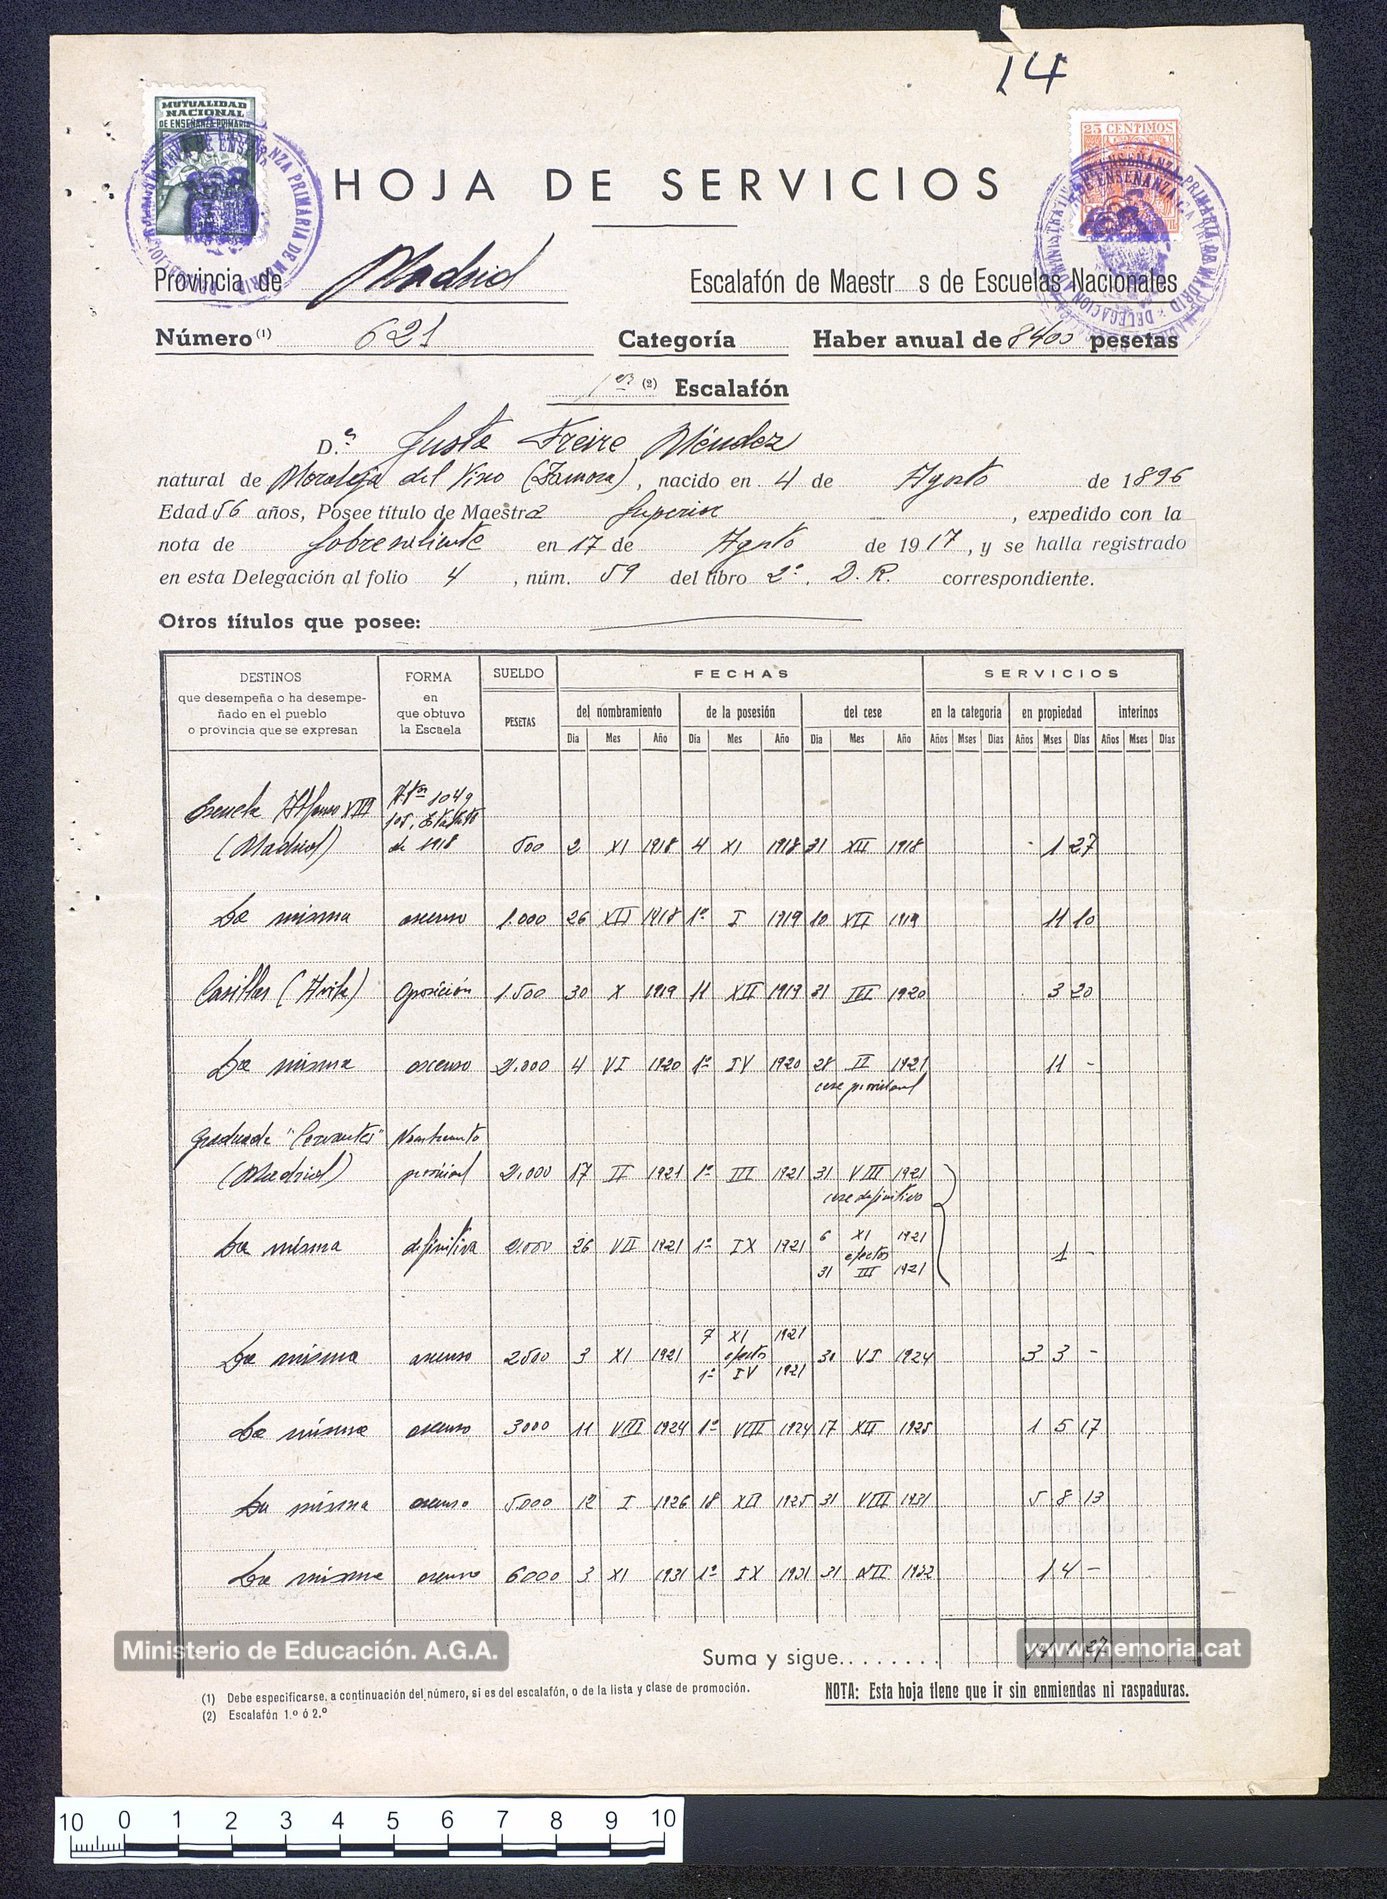 14
MUTUALIDAD
NACIONAL
DE ENSEÑANZA PRIMARIA
25 CENTIMOS
HOJA DE SERVICIOS
Provincia de Madrid
Escalafón de Maestr s de Escuelas Nacionales
Número (1) 621 Categoría Haber anual de 8400 pesetas
1er (2) Escalafón
D.ª Justa Freire Méndez
natural de Moraleja del Vino (Zamora), nacido en 4 de Agosto de 1896
Edad 56 años, Posee título de Maestra Superior, expedido con la
nota de Sobresaliente en 17 de Agosto de 1917, y se halla registrado
en esta Delegación al folio 4, núm. 59 del libro 2º. D. R. correspondiente.
Otros títulos que posee:
DESTINOS FORMA SUELDO FECHAS SERVICIOS
que desempeña o ha desempe- en
ñado en el pueblo que obtuvo PESETAS del nombramiento de la posesión del cese en la categoria en propiedad interinos
o provincia que se expresan la Escuela
Dia Mes Año Dia Mes Año Dia Mes Año Años Mses Dias Años Mses Dias Años Mses Dias
Escuela Alfonso XIII 104 y
105, Estatuto
(Madrid) de 1918 500 2 XI 1918 4 XI 1918 31 XII 1918 1 27
La misma ascenso 1.000 26 XII 1918 1º I 1919 10 XII 1919 11 10
Casillas (Avila) Oposición 1.500 30 X 1919 11 XII 1919 31 III 1920 3 20
La misma ascenso 2.000 4 VI 1920 1º IV 1920 28 II 1921 11 -
cese provisional
Graduada "Cervantes" Nombramto
(Madrid) provisional 2.000 17 II 1921 1º III 1921 31 VIII 1921
cese definitivo
La misma definitiva 2.000 26 VII 1921 1º IX 1921 6 XI 1921 1 -
efectos
31 III 1921
7 XI 1921
La misma ascenso 2500 3 XI 1921 efectos 30 VI 1924 3 3 -
1º IV 1921
La misma ascenso 3000 11 VIII 1924 1º VIII 1924 17 XII 1925 1 5 17
La misma ascenso 5000 12 I 1926 18 XII 1925 31 VIII 1931 5 8 13
La misma ascenso 6000 3 XI 1931 1º IX 1931 31 XII 1932 1 4 -
Ministerio de Educación. A.G.A.
Suma y sigue........
www.memoria.cat
(1) Debe especificarse, a continuación del número, si es del escalafón, o de la lista y clase de promoción.
(2) Escalafón 1.º ó 2.º
NOTA: Esta hoja tiene que ir sin enmiendas ni raspaduras.
10 0 1 2 3 4 5 6 7 8 9 10